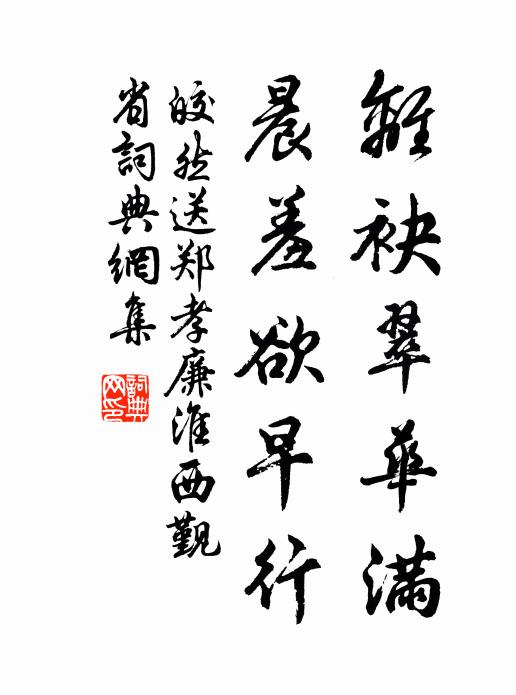 離袂翠華滿
晨羞欲早行
皎然送郑孝廉淮西覲
省詞典網集
詞典
网印